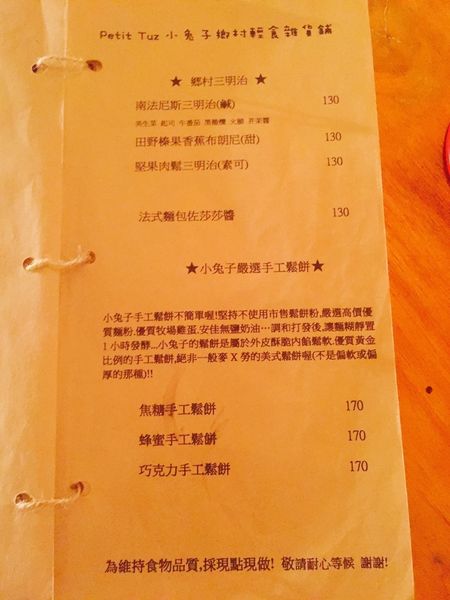 Petit Tuz 小兔子鄉村輕食雜貨舖
★ 鄉村三明治 ★
南法尼斯三明治(鹹) 130
美生菜 起司 牛番茄 黑橄欖 火腿 芥茉醬
田野榛果香蕉布朗尼(甜) 130
堅果肉鬆三明治(素可) 130
法式麵包佐莎莎醬 130
★小兔子嚴選手工鬆餅★
小兔子手工鬆餅不簡單喔!堅持不使用市售鬆餅粉,嚴選高價優
質麵粉.優質牧場雞蛋.安佳無鹽奶油…調和打發後,讓麵糊靜置
1小時發酵...小兔子的鬆餅是屬於外皮酥脆內餡鬆軟.優質黃金
比例的手工鬆餅,絕非一般麥X勞的美式鬆餅喔(不是偏軟或偏
厚的那種)!!
焦糖手工鬆餅 170
蜂蜜手工鬆餅 170
巧克力手工鬆餅 170
為維持食物品質,採現點現做! 敬請耐心等候 謝謝!